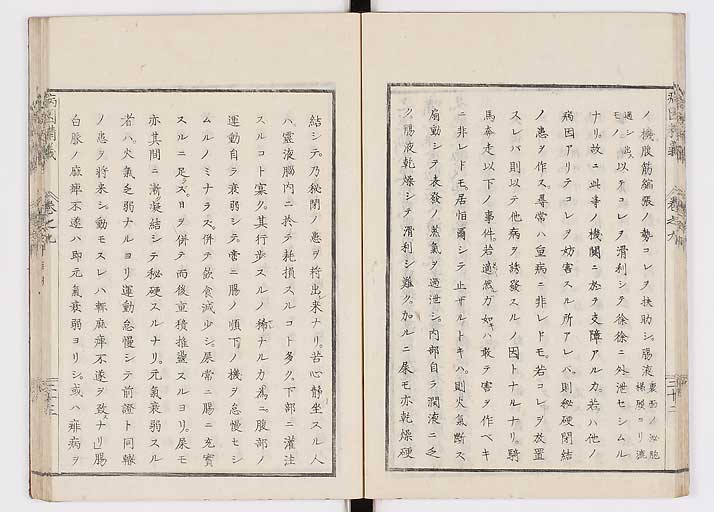 ノ機腹筋縮張ノ勢コレヲ扶助シ。腸液裏面ノ泌胞膜腺ヨリ漉
過シ出ス
モノ以テコレヲ滑利シテ徐徐ニ外泄セシムル
ナリ。故ニ此等ノ機関ニ於ヲ支障アルカ。若ハ他ノ
病因アリテコレヲ妨害スル所アレバ。則秘硬閉結
ノ患ヲ作ス。尋常ハ重病ニ非レドモ。若コレヲ放置
スレバ則以テ他病ヲ誘發スルノ因トナルナリ。騎
馬奔走以下ノ事件。若適然カ如キハ敢テ害ヲ作ベキ
ニ非レドモ。居恒爾シテ止ザルトキハ。則火氣斷ス
扇動シテ表發ノ蒸氣ヲ過泄シ。内部自ラ潤液ニ乏
ク。腸液乾燥シテ滑利シ難ク。加ルニ屎モ亦乾燥硬
結シテ。乃秘閉ノ患ヲ將出來ナリ。苦心靜坐スル人
ハ。靈液腦内ニ於テ耗損スルコト多ク。下部ニ灌注
スルコト寡ク。其行歩スルノ稀ナルカ為ニ。腹部ノ
運動自ラ衰弱シテ常ニ腸ノ順下ノ機ヲ怠慢セシ
ムルノミナラズ。併テ飲食減少シ。屎常ニ腸ニ充實
スルニ足ラズ。日ヲ併テ而後重積推盪スルヨリ。屎モ
亦其間ニ漸ク凝結シテ秘硬スルナリ。元氣衰弱スル
者ハ。火氣乏弱ナルヨリ運動怠慢シテ前證ト同轍
ノ患ヲ將来シ。動モスレハ輙麻痺不遂ヲ致スナリ」腸
自腋ノ麻痺不遂ハ即元氣衰弱ヨリシ。或ハ雜病ヲ
病因精義
卷之九
三十三
卷之九
三十二